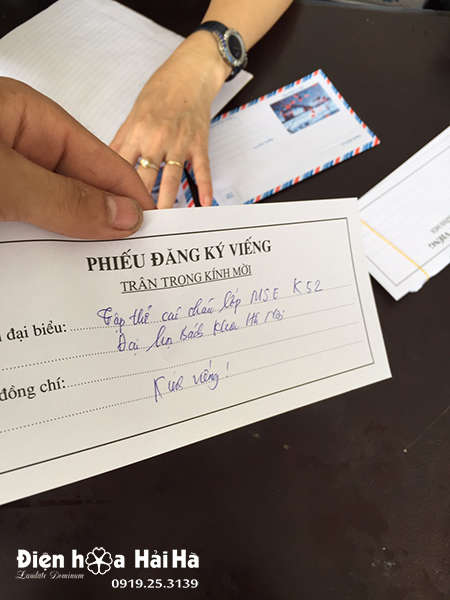 PHIẾU ĐĂNG KÝ VIẾNG
TRÂN TRỌNG KÍNH MỜI
đại biểu: Tập thể các cháu lớp MSE K52
Đại học Bách Khoa Hà Nội
đồng chí:
Kính viếng!
Điện hoa Hải Hà
Laudate Dominum
0919.25.3139